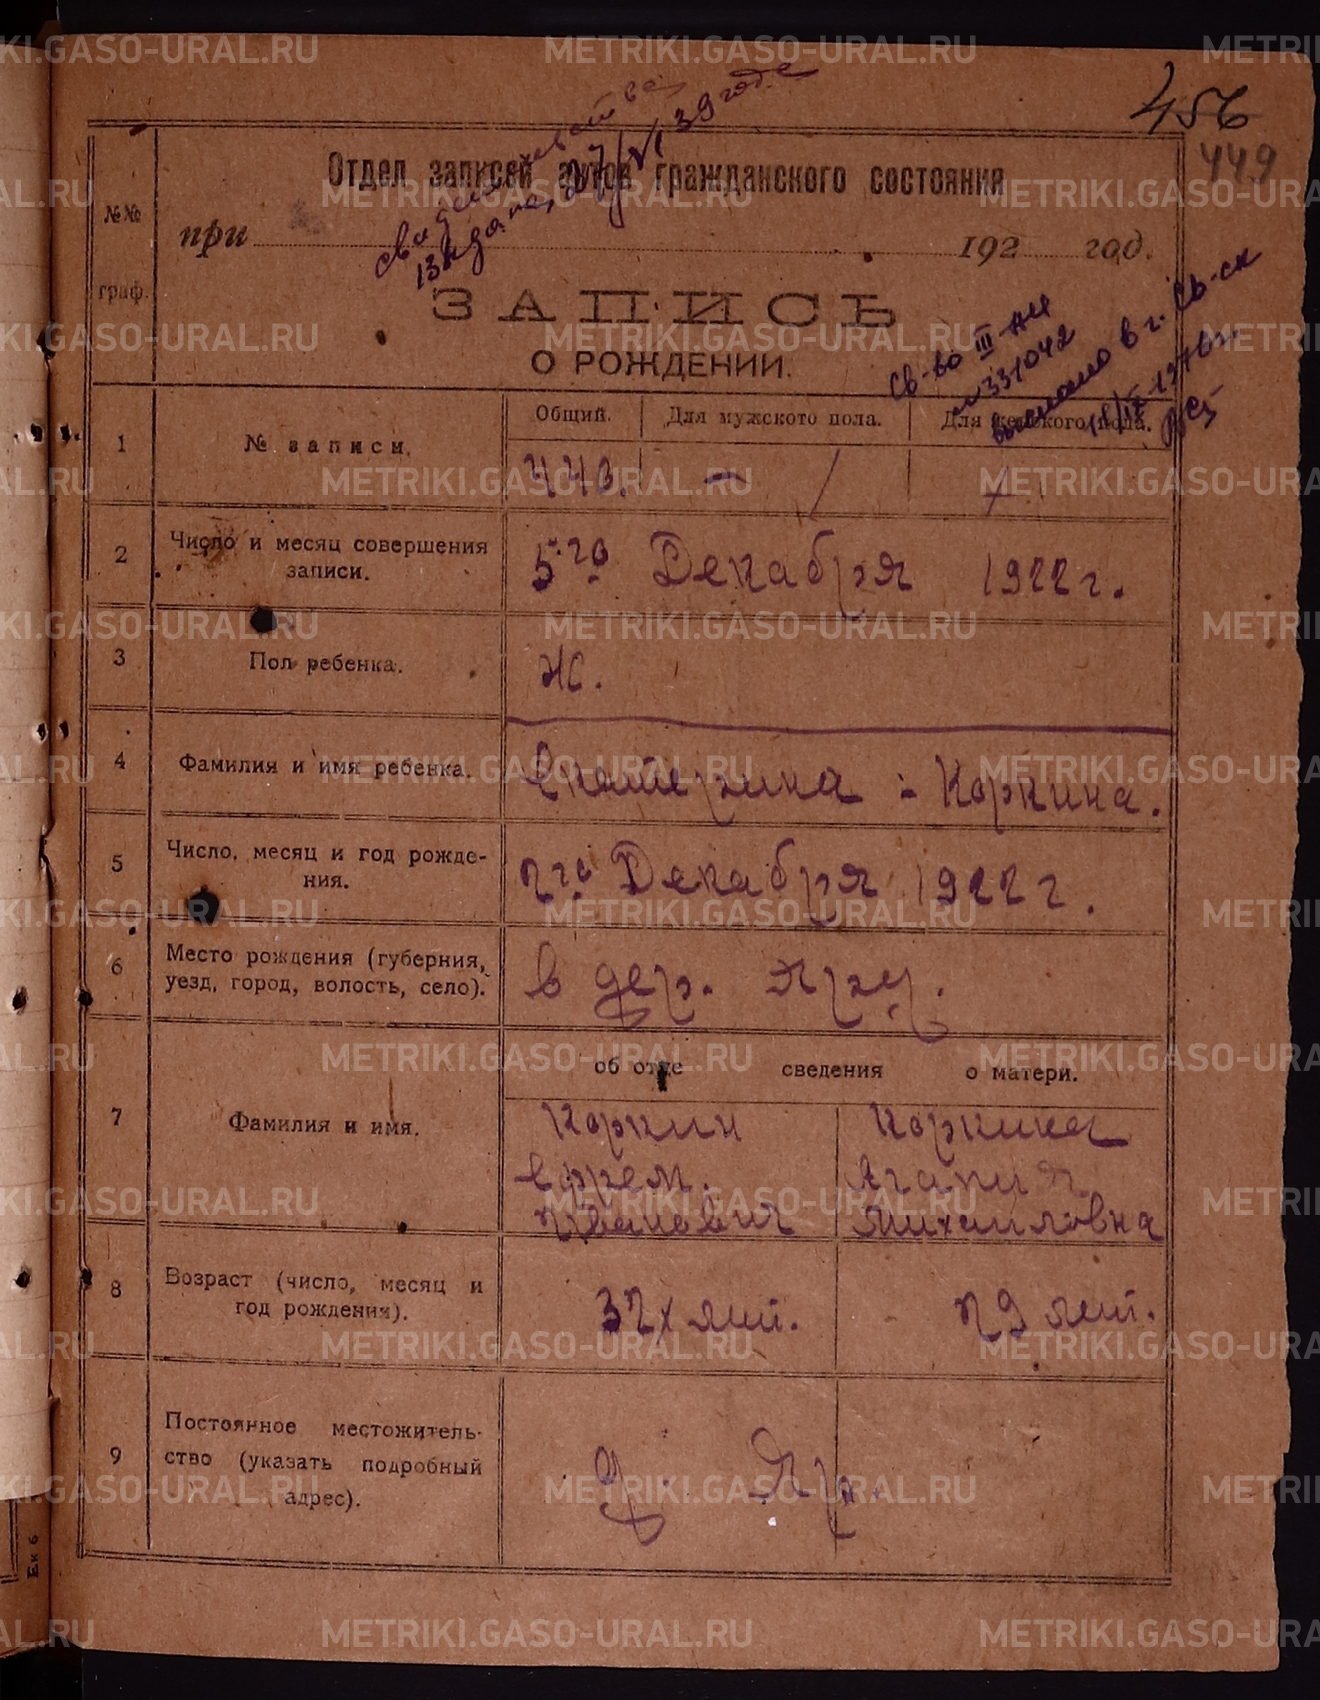 456
449
Свидетельство
27/VI 39 года
Отдел записей актов гражданского состояния
№№
граф.
при 192 год.
ЗАПИСЬ
О РОЖДЕНИИ.
Св-во III-АИ
№331042
выслано в г. Св-ск
1 № записи. Общий. Для мужского пола. Для женского пола.
443. —
2 Число и месяц совершения
записи.
5-го Декабря 1922 г.
3 Пол ребенка. Ж.
4 Фамилия и имя ребенка. Екатерина - Коркина.
5 Число, месяц и год рожде-
ния.
2го Декабря 1922 г.
6 Место рождения (губерния,
уезд, город, волость, село).
в дер.
об отце сведения о матери.
7 Фамилия и имя.
Коркин Коркина
Ефрем. Агапия
Иванович Михаиловна
8 Возраст (число, месяц и
год рождения).
32х лет. 29 лет.
9 Постоянное местожитель-
ство (указать подробный
адрес).
д.
Ек 6
METRIKI.GASO-URAL.RU